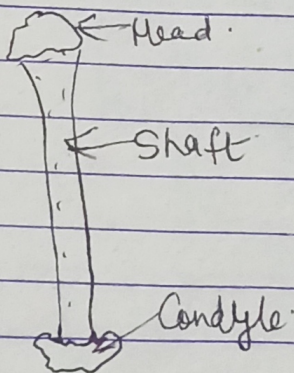 Head.
Shaft
Condyle